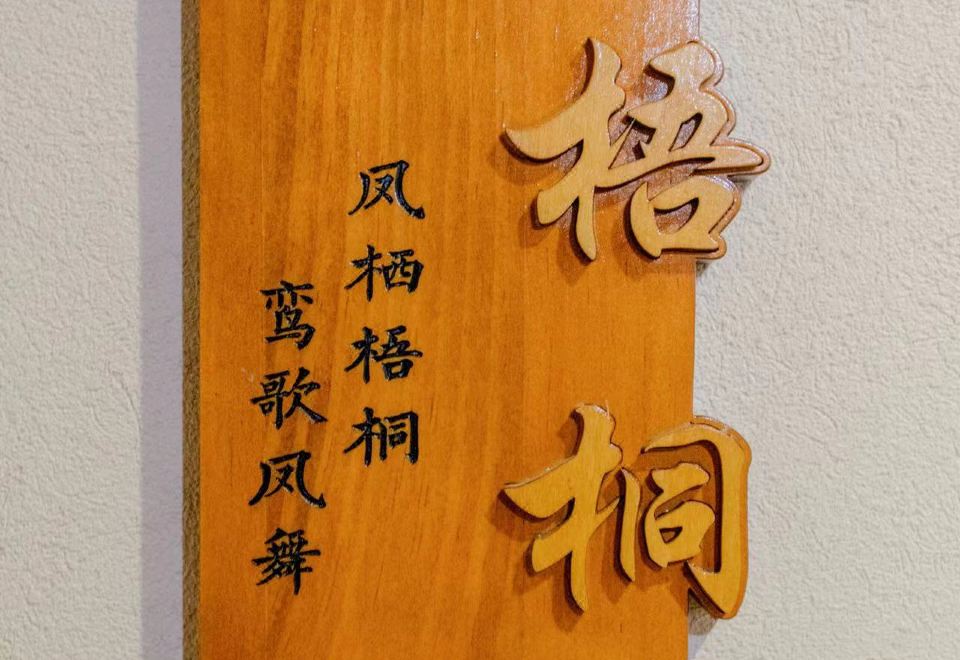 梧桐
凤栖梧桐
鸾歌凤舞